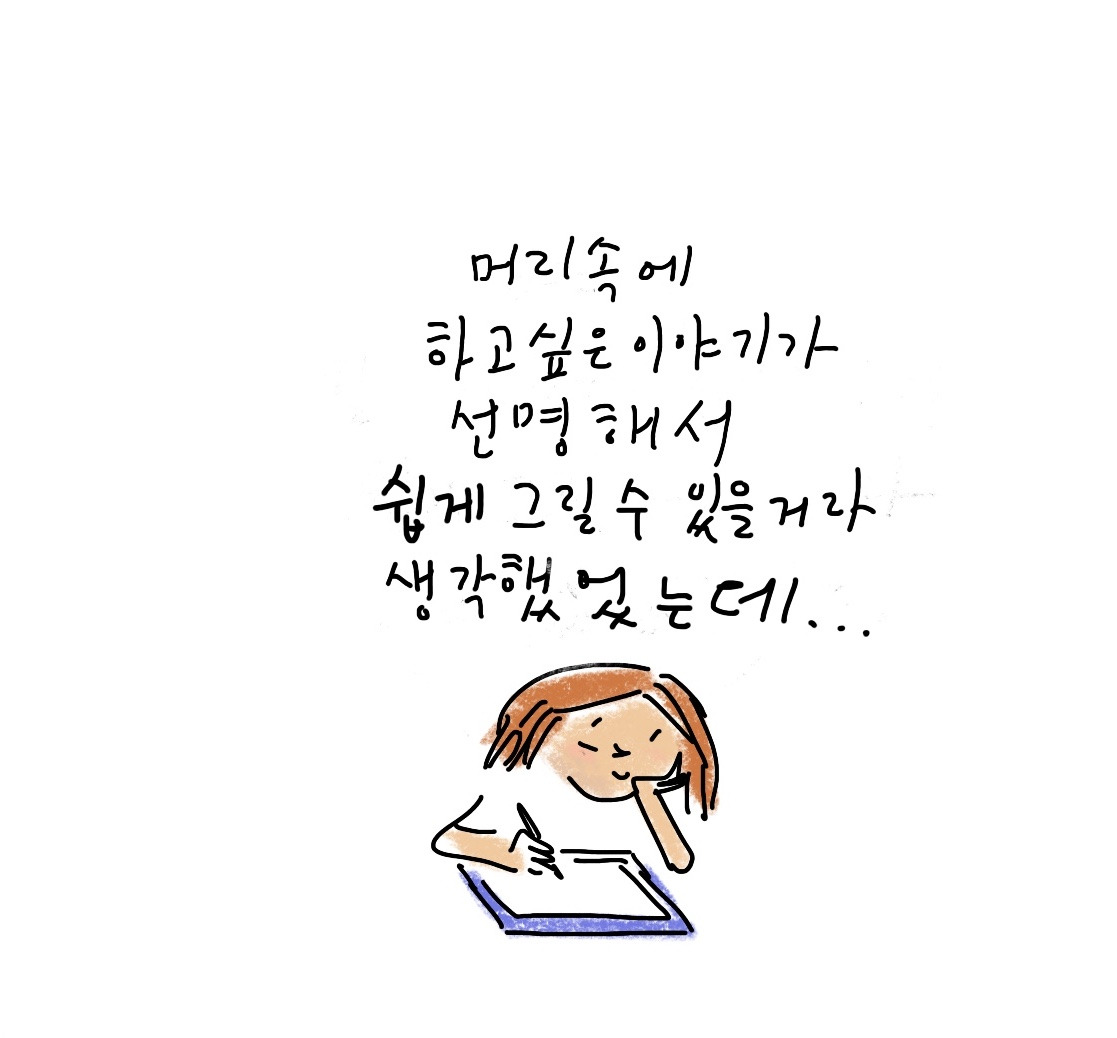 머리속에
하고싶은 이야기가
선명해서
쉽게 그릴 수 있을거라
생각했었는데...